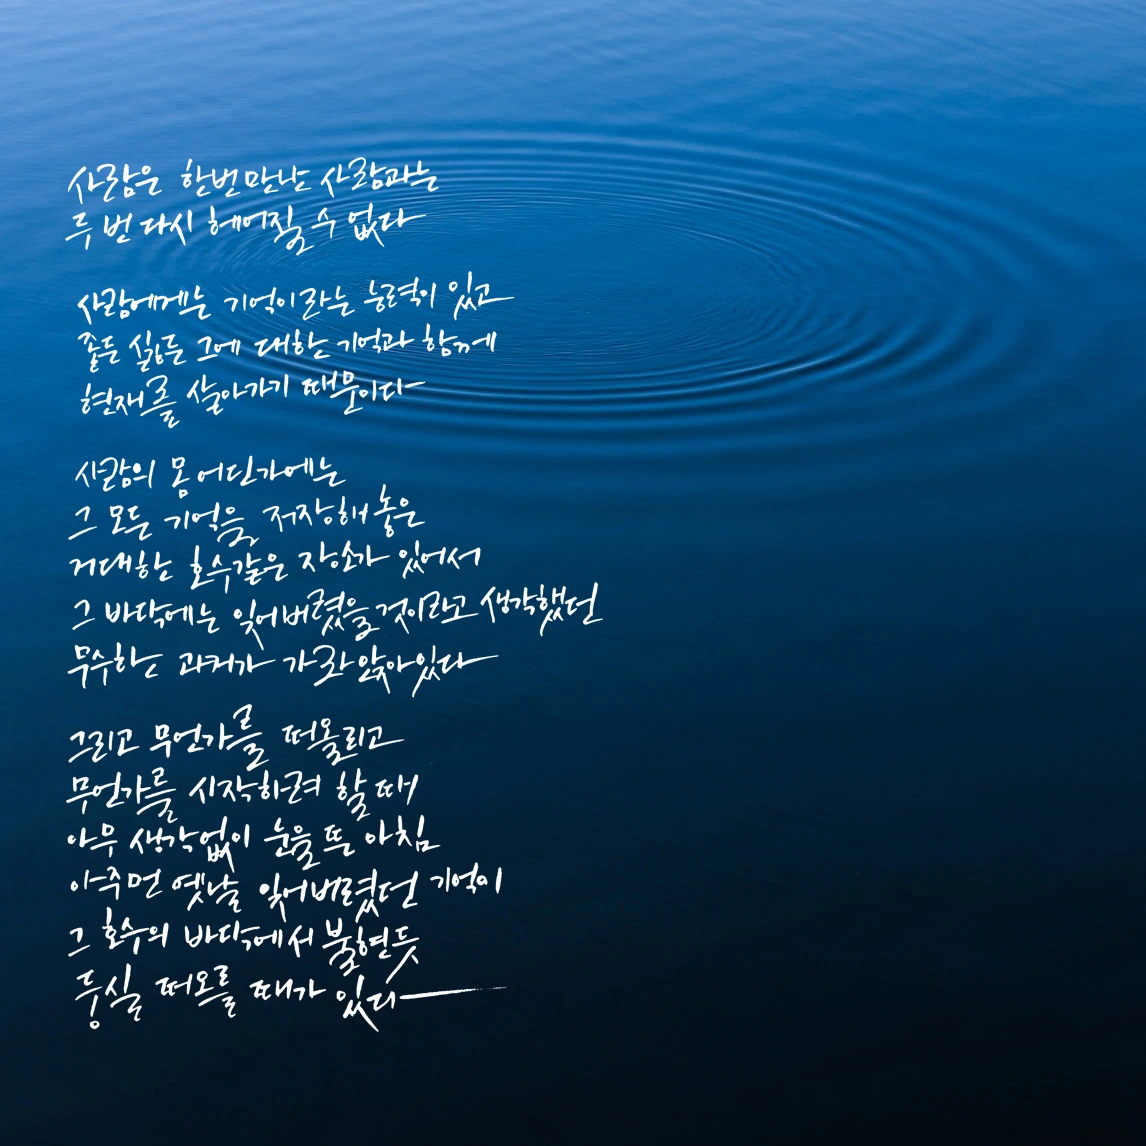 사람은 한번 만난 사람과는
두 번 다시 헤어질 수 없다
사람에게는 기억이라는 능력이 있고
좋든 싫든 그에 대한 기억과 함께
현재를 살아가기 때문이다
사람의 몸 어딘가에는
그 모든 기억을 저장해 놓은
거대한 호수같은 장소가 있어서
그 바닥에는 잊어버렸을 것이라고 생각했던
무수한 과거가 가라앉아있다
그리고 무언가를 떠올리고
무언가를 시작하려 할 때
아무 생각없이 눈을 뜬 아침
아주먼 옛날 잊어버렸던 기억이
그 호수의 바닥에서 불현듯
둥실 떠오를 때가 있다